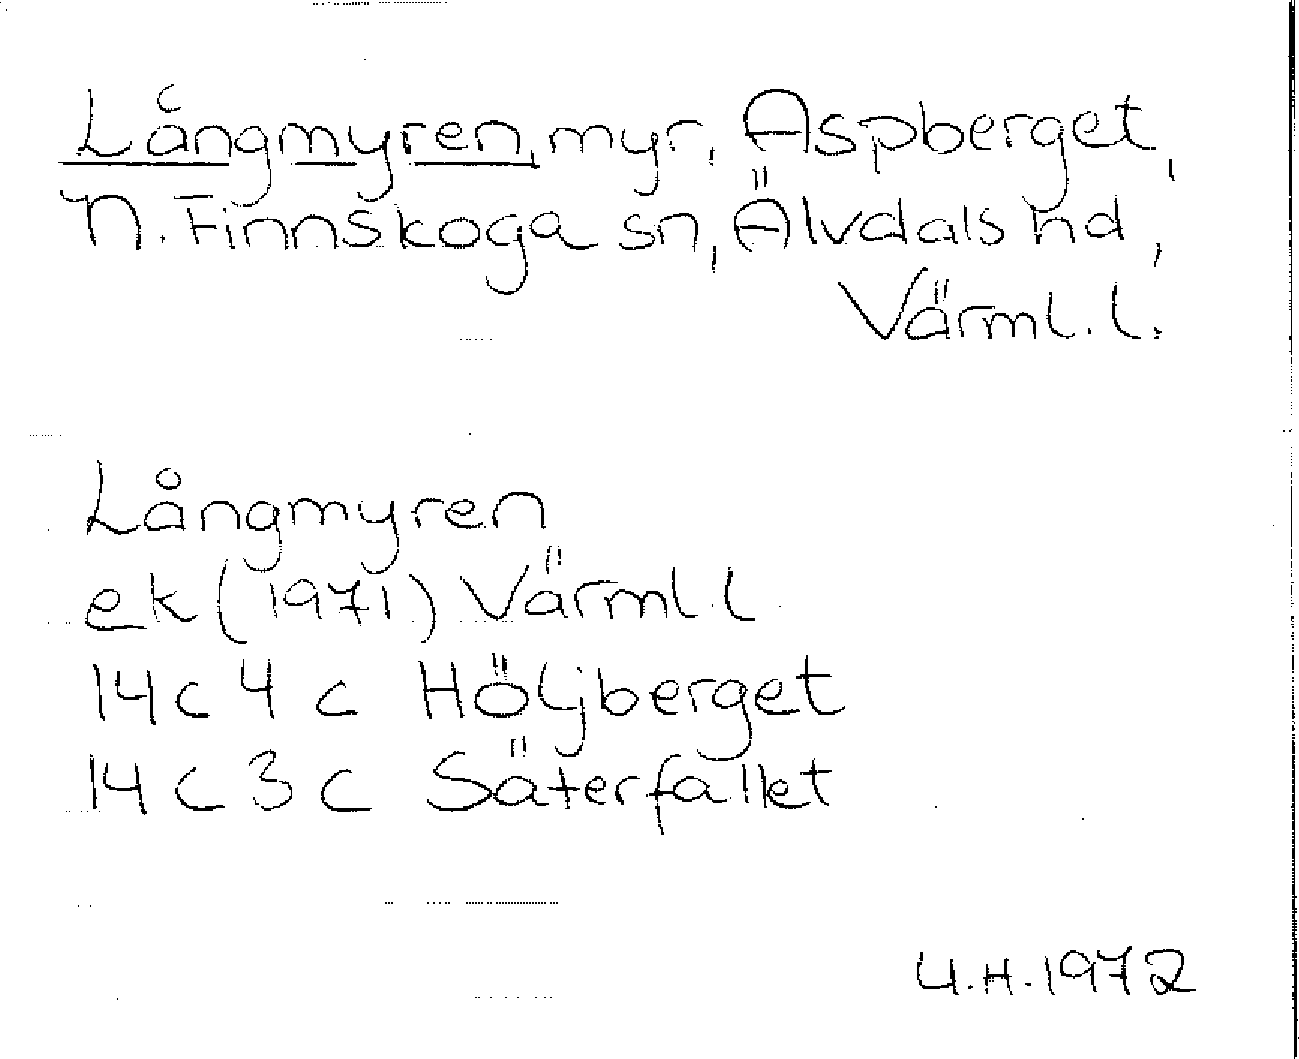 Långmyren, myr, Aspberget,
N. Finnskoga sn, Älvdals hd,
Värml. l.
Långmyren
ek (1971) Värml. l
14 c 4 c Höljberget
14 c 3 c Säterfallet
U.H. 1972